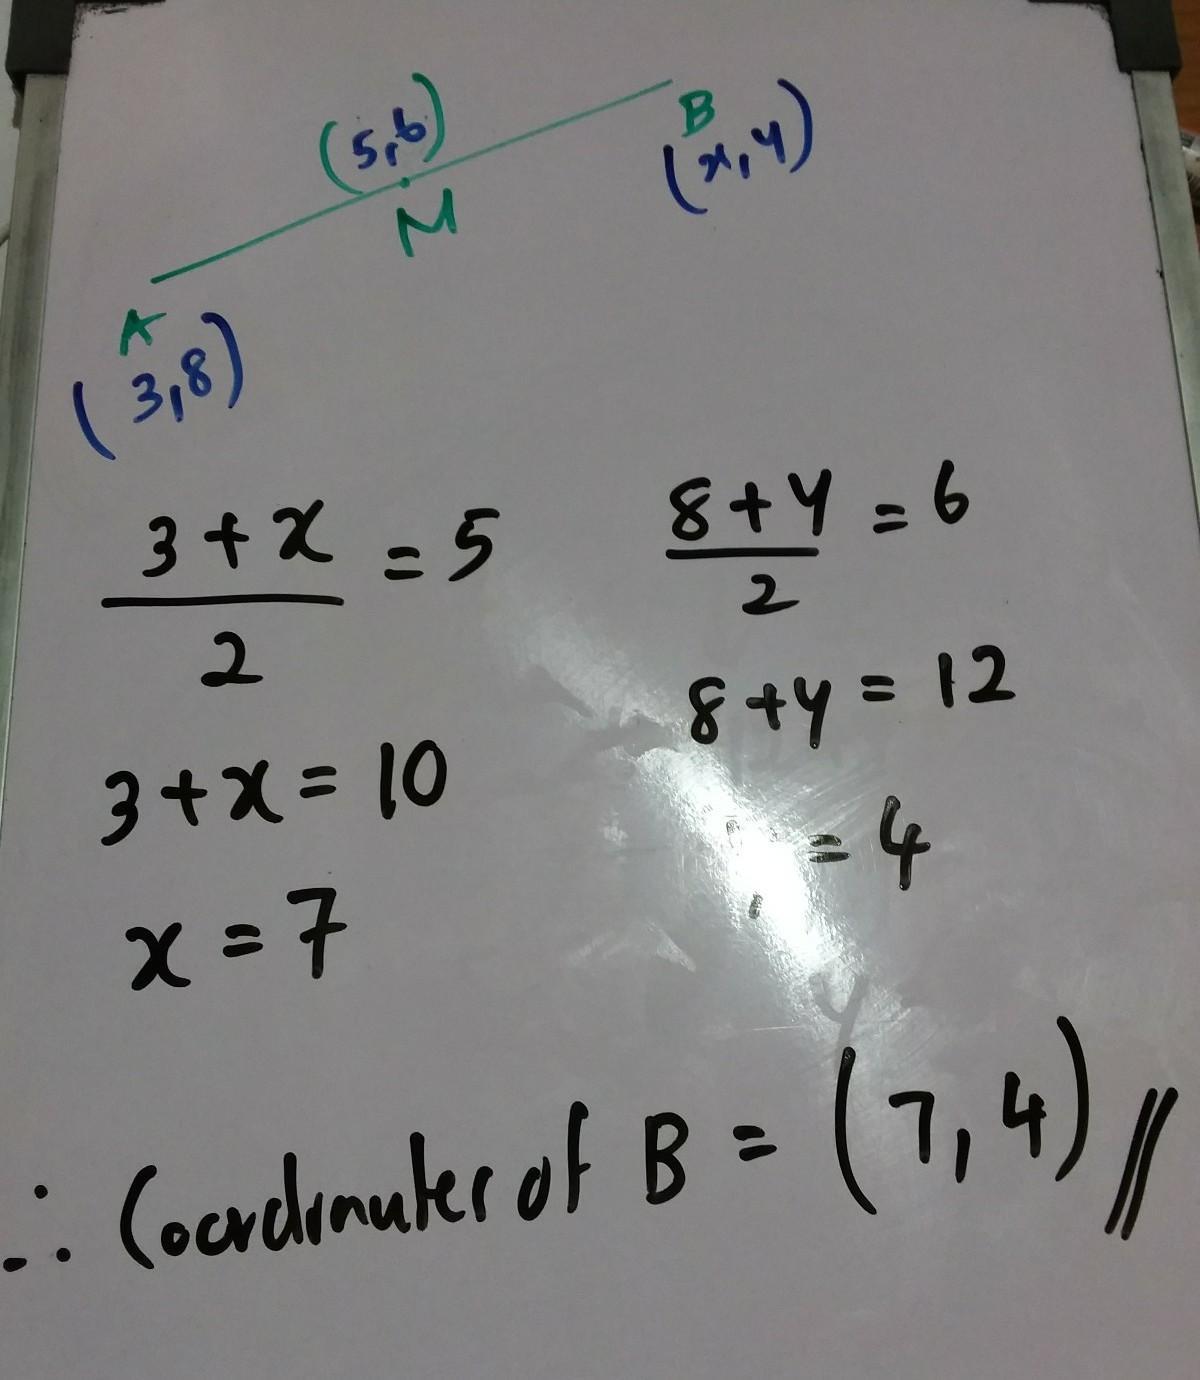 (5,6)
B
(x,y)
M
A
(3,8)
3+x
2
=5
3+x=10
x=7
8+y
2
=6
8+y=12
=4
∴ Coordinates of B = (7,4)//